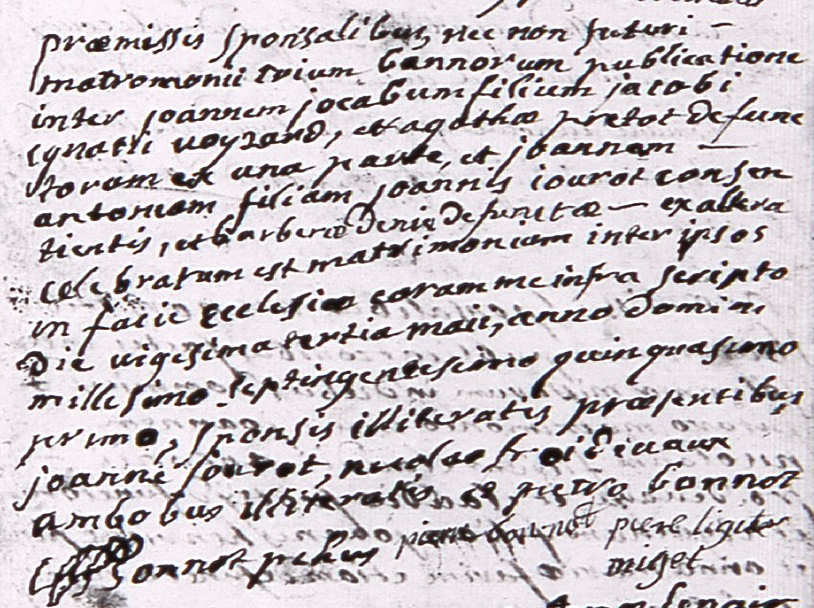 præmissis sponsalibus, nec non futuri –
matromonii trium bannorum publicatione
inter joannem jocabum filium jacobi
ignatii voyzard, et agathæ pretot defunc
torum ex una parte, et joannam —
antoniam filiam joannis iourot consen
tientis, et barberæ denis defunctæ — ex altera
celebratum est matrimonium inter ipsos
in facie ecclesiæ coram me infra scripto
Die vigesima tertia maii, anno domini
millesimo septingentesimo quinquagesimo
primo, sponsis illiteratis præsentibus
joanne jourot, nicolao froidevaux
ambobus illiteratis et petro bonnot
Bonnot petrus pierre bonnot piere ligier